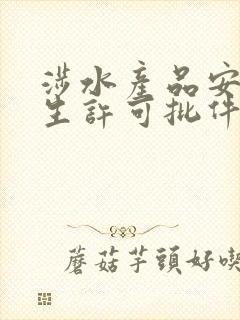 涉水產品安
生許可批件
蘑菇芋頭好喫